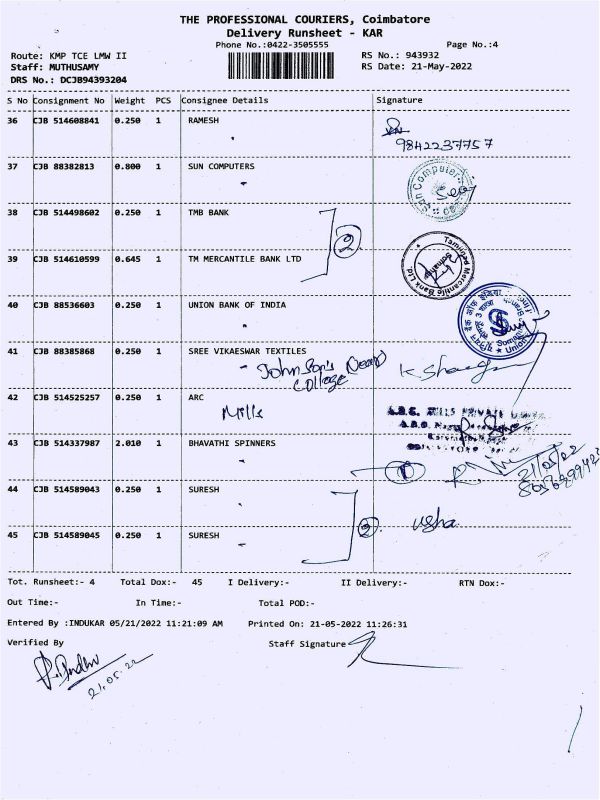 THE PROFESSIONAL COURIERS, Coimbatore
Delivery Runsheet - KAR
Phone No.:0422-3505555
Page No.:4
Route: KMP TCE LMW II
RS No.: 943932
Staff: MUTHUSAMY
RS Date: 21-May-2022
DRS No.: DCJB94393204
S No Consignment No Weight PCS Consignee Details Signature
36 CJB 514608841 0.250 1 RAMESH
9842237757
37 CJB 88382813 0.800 1 SUN COMPUTERS
Sun Computer
38 CJB 514498602 0.250 1 TMB BANK
2
39 CJB 514610599 0.645 1 TM MERCANTILE BANK LTD
Tamilnad Mercantile Bank Ltd
40 CJB 88536603 0.250 1 UNION BANK OF INDIA
Union
41 CJB 88385868 0.250 1 SREE VIKAESWAR TEXTILES
Johnson's
College
42 CJB 514525257 0.250 1 ARC
Mills
MILLS PRIVATE
43 CJB 514337987 2.010 1 BHAVATHI SPINNERS
1
21/05/22
44 CJB 514589043 0.250 1 SURESH
2
usha
45 CJB 514589045 0.250 1 SURESH
Tot. Runsheet:- 4 Total Dox:- 45 I Delivery:- II Delivery:- RTN Dox:-
Out Time:- In Time:- Total POD:-
Entered By :INDUKAR 05/21/2022 11:21:09 AM Printed On: 21-05-2022 11:26:31
Verified By Staff Signature
21.05.22